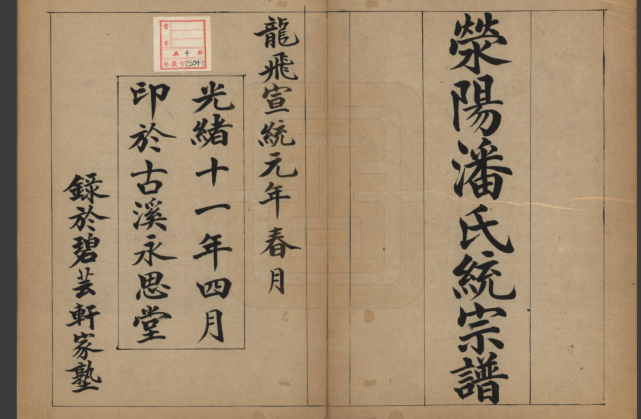 滎陽潘氏統宗譜
龍飛宣統元年春月
光緒十一年四月
印於古溪永思堂
錄於碧芸軒家塾